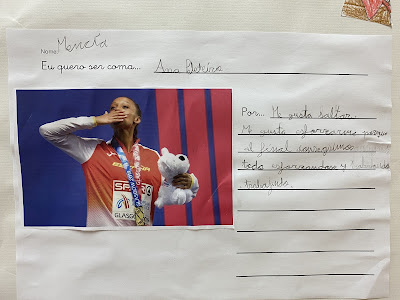 Nome: Mencía
Eu quero ser coma... Ana Peleteiro
Por... Me gusta saltar.
Me gusta esforzarme porque
al final conseguimos
todo esforzandose y
GLASGOW